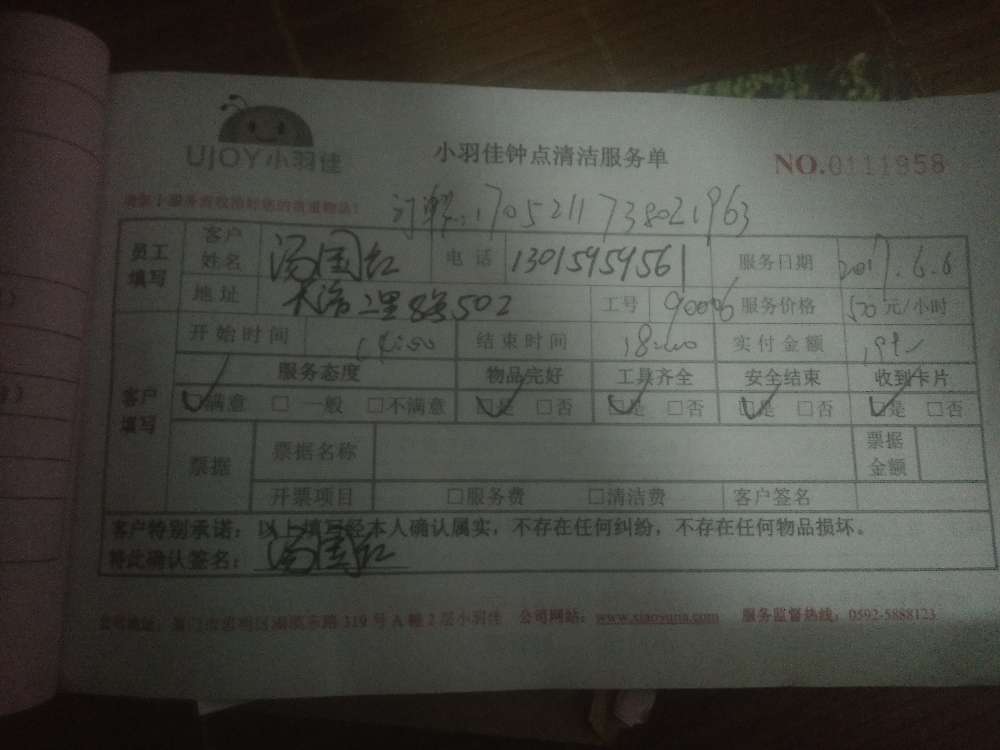 UJOY小羽佳
小羽佳钟点清洁服务单
NO.0111958
订单:1705211738021963
员工填写
客户姓名 汤国红 电话 13015959561 服务日期 2017.6.6
地址 502 工号 90006 服务价格 50元/小时
客户填写
开始时间 14:00 结束时间 18:00 实付金额
服务态度 物品完好 工具齐全 安全结束 收到卡片
☑满意 □一般 □不满意 ☑是 □否 ☑是 □否 ☑是 □否 ☑是 □否
票据 票据名称 票据金额
开票项目 □服务费 □清洁费 客户签名
客户特别承诺:以上填写经本人确认属实,不存在任何纠纷,不存在任何物品损坏。
特此确认签名:汤国红
公司地址:厦门市思明区湖滨东路319号A幢2层小羽佳 公司网站:www.xiaoyujia.com 服务监督热线:0592-5888123